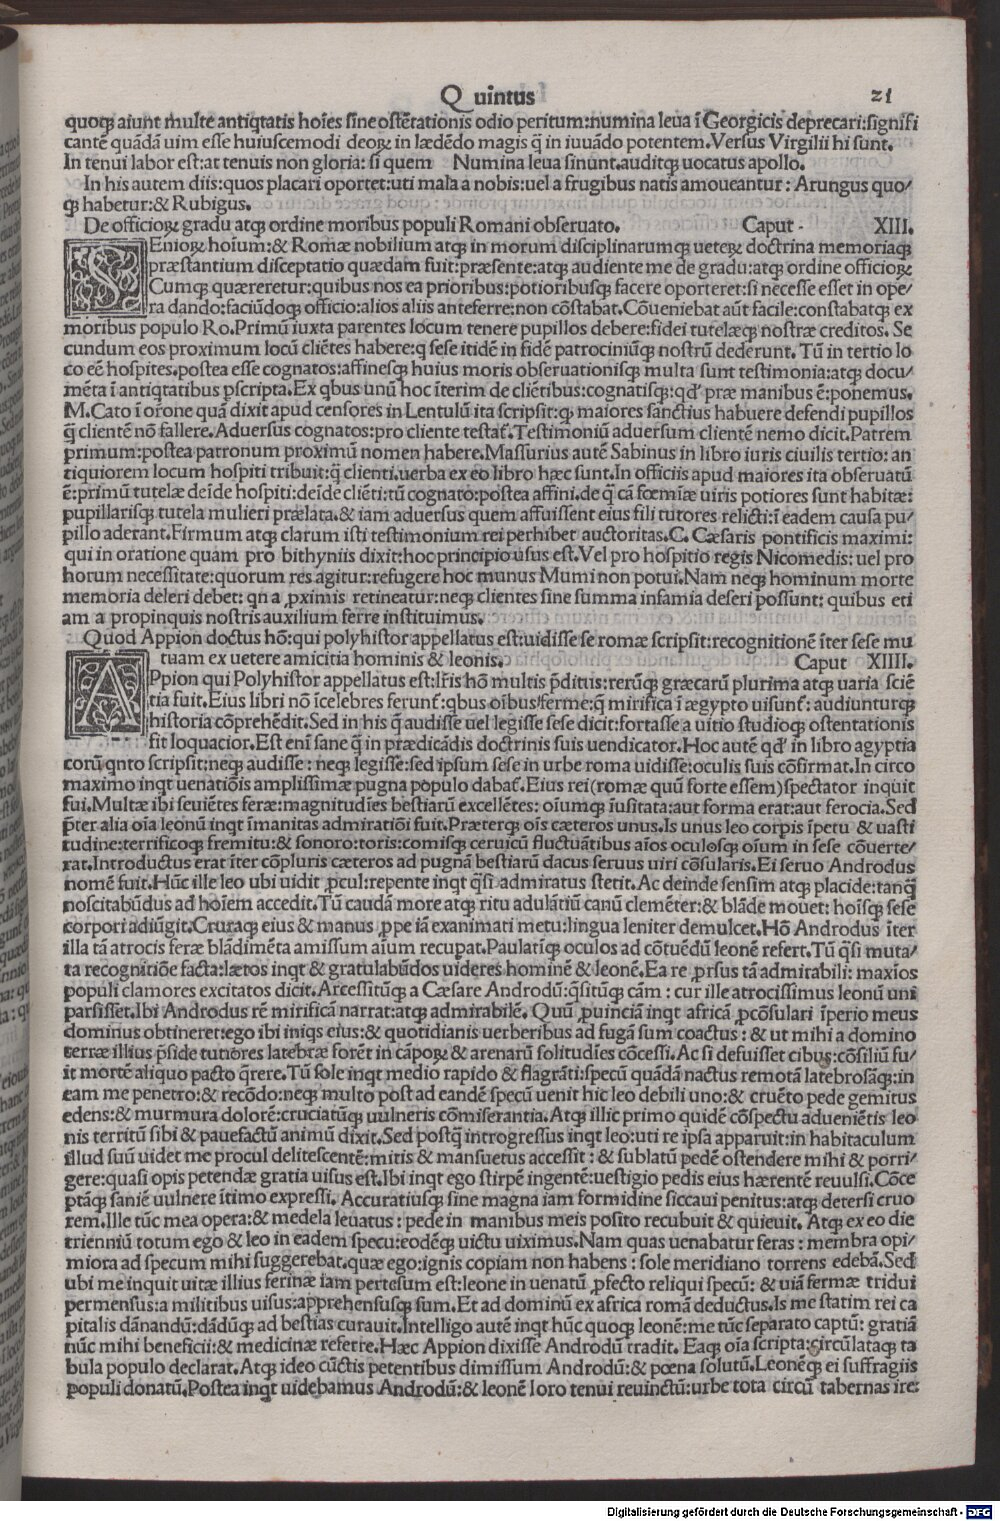 Q uintus 21
quoqꝫ aiunt multe antiqtatis hoīes sine ostētationis odio peritum:numina leua ī Georgicis deprecari:signifi
cantē quādā uim esse huiuscemodi deoꝝ in lædēdo magis q̄ in iuuādo potentem.Versus Virgilii hi sunt.
In tenui labor est:at tenuis non gloria: si quem Numina leua sinunt.auditqꝫ uocatus apollo.
In his autem diis:quos placari oportet:uti mala a nobis:uel a frugibus natis amoueantur: Arungus quo/
qꝫ habetur:& Rubigus.
De officioꝝ gradu atqꝫ ordine moribus populi Romani obseruato. Caput XIII.
SEnioꝝ hoīum:& Romæ nobilium atqꝫ in morum disciplinarumqꝫ ueteꝝ doctrina memoriaqꝫ
præstantium disceptatio quædam fuit:præsente:atqꝫ audiente me de gradu:atqꝫ ordine officioꝝ
Cumqꝫ quæreretur:quibus nos ea prioribus:potioribusqꝫ facere oporteret:si necesse esset in ope/
ra dando:faciūdoqꝫ officio:alios aliis anteferre:non cōstabat.Cōueniebat aūt facile:constabatqꝫ ex
moribus populo Ro.Primū iuxta parentes locum tenere pupillos debere:fidei tutelæqꝫ nostræ creditos. Se
cundum eos proximum locū cliētes habere:q sese itidē in fidē patrociniūqꝫ nostrū dederunt. Tū in tertio lo
co eē hospites.postea esse cognatos:affinesqꝫ huius moris obseruationisqꝫ multa sunt testimonia:atqꝫ docu/
mēta ī antiqtatibus pscripta.Ex qbus unū hoc īterim de cliētibus:cognatisqꝫ:qd' præ manibus ē:ponemus.
M.Cato ī orōne quā dixit apud censores in Lentulū ita scripsit:qꝫ maiores sanctius habuere defendi pupillos
q̄ clientē nō fallere.Aduersus cognatos:pro cliente testat̄.Testimoniū aduersum clientē nemo dicit.Patrem
primum:postea patronum proximū nomen habere.Massurius autē Sabinus in libro iuris ciuilis tertio: an
tiquiorem locum hospiti tribuit:q̄ clienti.uerba ex eo libro hæc sunt.In officiis apud maiores ita obseruatū
ē:primū tutelæ deīde hospiti:deīde cliēti:tū cognato:postea affini.de q̄ cā fœmīæ uiris potiores sunt habitæ:
pupillarisqꝫ tutela mulieri prælata.& iam aduersus quem affuissent eius fili tutores relicti:ī eadem causa pu/
pillo aderant.Firmum atqꝫ clarum isti testimonium rei perhibet auctoritas.C. Cæsaris pontificis maximi:
qui in oratione quam pro bithyniis dixit:hoc principio usus est.Vel pro hospitio regis Nicomedis: uel pro
horum necessitate:quorum res agitur:refugere hoc munus Mumi non potui.Nam neqꝫ hominum morte
memoria deleri debet: qn a ꝓximis retineatur:neqꝫ clientes sine summa infamia deseri possunt: quibus eti
am a propinquis nostris auxilium ferre instituimus.
Quod Appion doctus hō:qui polyhistor appellatus est:uidisse se romæ scripsit:recognitionē īter sese mu
tuam ex uetere amicitia hominis & leonis. Caput XIIII.
APpion qui Polyhistor appellatus est:lr̄is hō multis p̄ditus:rerūqꝫ græcarū plurima atqꝫ uaria sciē
tia fuit.Eius libri nō īcelebres ferunt̄:qbus oibus ferme:q̄ mirifica ī ægypto uisunt̄: audiunturqꝫ
historia cōprehēdit.Sed in his q̄ audisse uel legisse sese dicit:fortasse a uitio studioqꝫ ostentationis
fit loquacior.Est enī sane q̄ in prædicādis doctrinis suis uendicator.Hoc autē qd' in libro ægyptia
corū qnto scripsit:neqꝫ audisse: neqꝫ legisse:sed ipsum sese in urbe roma uidisse:oculis suis cōfirmat.In circo
maximo inqt uenatiōis amplissimæ pugna populo dabat̄.Eius rei(romæ quū forte essem)spectator inquit
fui.Multæ ibi seuiētes feræ:magnitudīes bestiarū excellētes: oīumqꝫ īusitata:aut forma erat:aut ferocia.Sed
p̄ter alia oīa leonū inqt īmanitas admiratiōi fuit.Præterqꝫ oīs cæteros unus.Is unus leo corpis īpetu & uasti
tudine:terrificoqꝫ fremitu:& sonoro:toris:comisqꝫ ceruicū fluctuātibus aīos oculosqꝫ oīum in sese cōuerte/
rat.Introductus erat īter cōpluris cæteros ad pugnā bestiarū dacus seruus uiri cōsularis.Ei seruo Androdus
nomē fuit.Hūc ille leo ubi uidit ꝓcul:repente inqt q̄si admiratus stetit. Ac deinde sensim atqꝫ placide:tanq̄
noscitabūdus ad hoīem accedit.Tū caudā more atqꝫ ritu adulātiū canū clemēter:& blāde mouet: hoīsqꝫ sese
corpori adiūgit.Cruraqꝫ eius & manus ꝓpe iā exanimati metu:lingua leniter demulcet.Hō Androdus īter
illa tā atrocis feræ blādimēta amissum aīum recupat.Paulatīqꝫ oculos ad cōtuēdū leonē refert.Tū q̄si muta/
ta recognitiōe facta:lætos inqt & gratulabūdos uideres hominē & leonē.Ea re ꝓrsus tā admirabili: maxīos
populi clamores excitatos dicit.Arcessitūqꝫ a Cæsare Androdū:q̄sitūqꝫ cām: cur ille atrocissimus leonū uni
parsisset.Ibi Androdus rē mirificā narrat:atqꝫ admirabilē. Quū ꝓuinciā inqt africā ꝓcōsulari īperio meus
dominus obtineret:ego ibi iniqs eius:& quotidianis uerberibus ad fugā sum coactus: & ut mihi a domino
terræ illius p̄side tutiores latebræ forēt in cāpoꝝ & arenarū solitudīes cōcessi.Ac si defuisset cibus:cōsiliū fu/
it mortē aliquo pacto q̄rere.Tū sole inqt medio rapido & flagrāti:specū quādā nactus remotā latebrosāqꝫ:in
eam me penetro:& recōdo:neqꝫ multo post ad eandē specū uenit hic leo debili uno:& cruēto pede gemitus
edens:& murmura dolorē:cruciatūqꝫ uulneris cōmiserantia.Atqꝫ illic primo quidē cōspectu aduenīetis leo
nis territū sibi & pauefactū animū dixit.Sed postq̄ introgressus inqt leo:uti re ipsa apparuit:in habitaculum
illud suū uidet me procul delitescentē:mitis & mansuetus accessit: & sublatū pedē ostendere mihi & porri/
gere:quasi opis petendæ gratia uisus est.Ibi inqt ego stirpē ingentē:uestigio pedis eius hærentē reuulsi.Cōce
ptāqꝫ saniē uulnere ītimo expressi.Accuratiusqꝫ sine magna iam formidine siccaui penitus:atqꝫ detersi cruo
rem.Ille tūc mea opera:& medela leuatus: pede in manibus meis posito recubuit & quieuit. Atqꝫ ex eo die
trienniū totum ego & leo in eadem specu:eodēqꝫ uictu uiximus.Nam quas uenabatur feras: membra opi/
miora ad specum mihi suggerebat.quæ ego:ignis copiam non habens: sole meridiano torrens edebā.Sed
ubi me inquit uitæ illius ferinæ iam pertesum est:leone in uenatū ꝓfecto reliqui specū: & uiā fermæ tridui
permensus:a militibus uisus:apprehensusqꝫ sum.Et ad dominū ex africa romā deductus.Is me statim rei ca
pitalis dānandū:dādūqꝫ ad bestias curauit.Intelligo autē inqt hūc quoqꝫ leonē:me tūc separato captū: gratiā
nūc mihi beneficii:& medicinæ referre.Hæc Appion dixisse Androdū tradit. Eaqꝫ oīa scripta:circūlataqꝫ ta
bula populo declarat.Atqꝫ ideo cūctis petentibus dimissum Androdū:& pœna solutū.Leonēqꝫ ei suffragiis
populi donatū.Postea inqt uidebamus Androdū:& leonē loro tenui reuinctū:urbe tota circū tabernas ire:
Digitalisierung gefördert durch die Deutsche Forschungsgemeinschaft - DFG